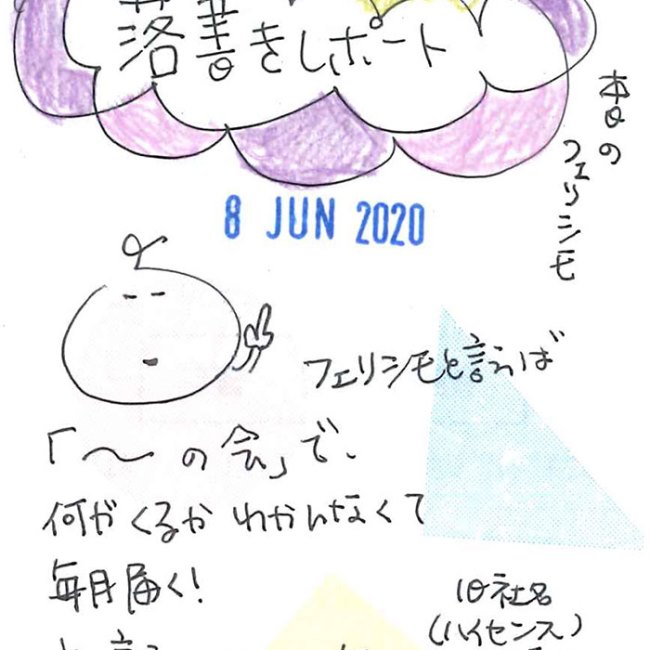 落書きレポート
本日の
フェリシモ
8 JUN 2020
フェリシモと言えば
「〜の会」で、
何がくるかわかんなくて
毎月届く!
旧社名
(ハイセンス)